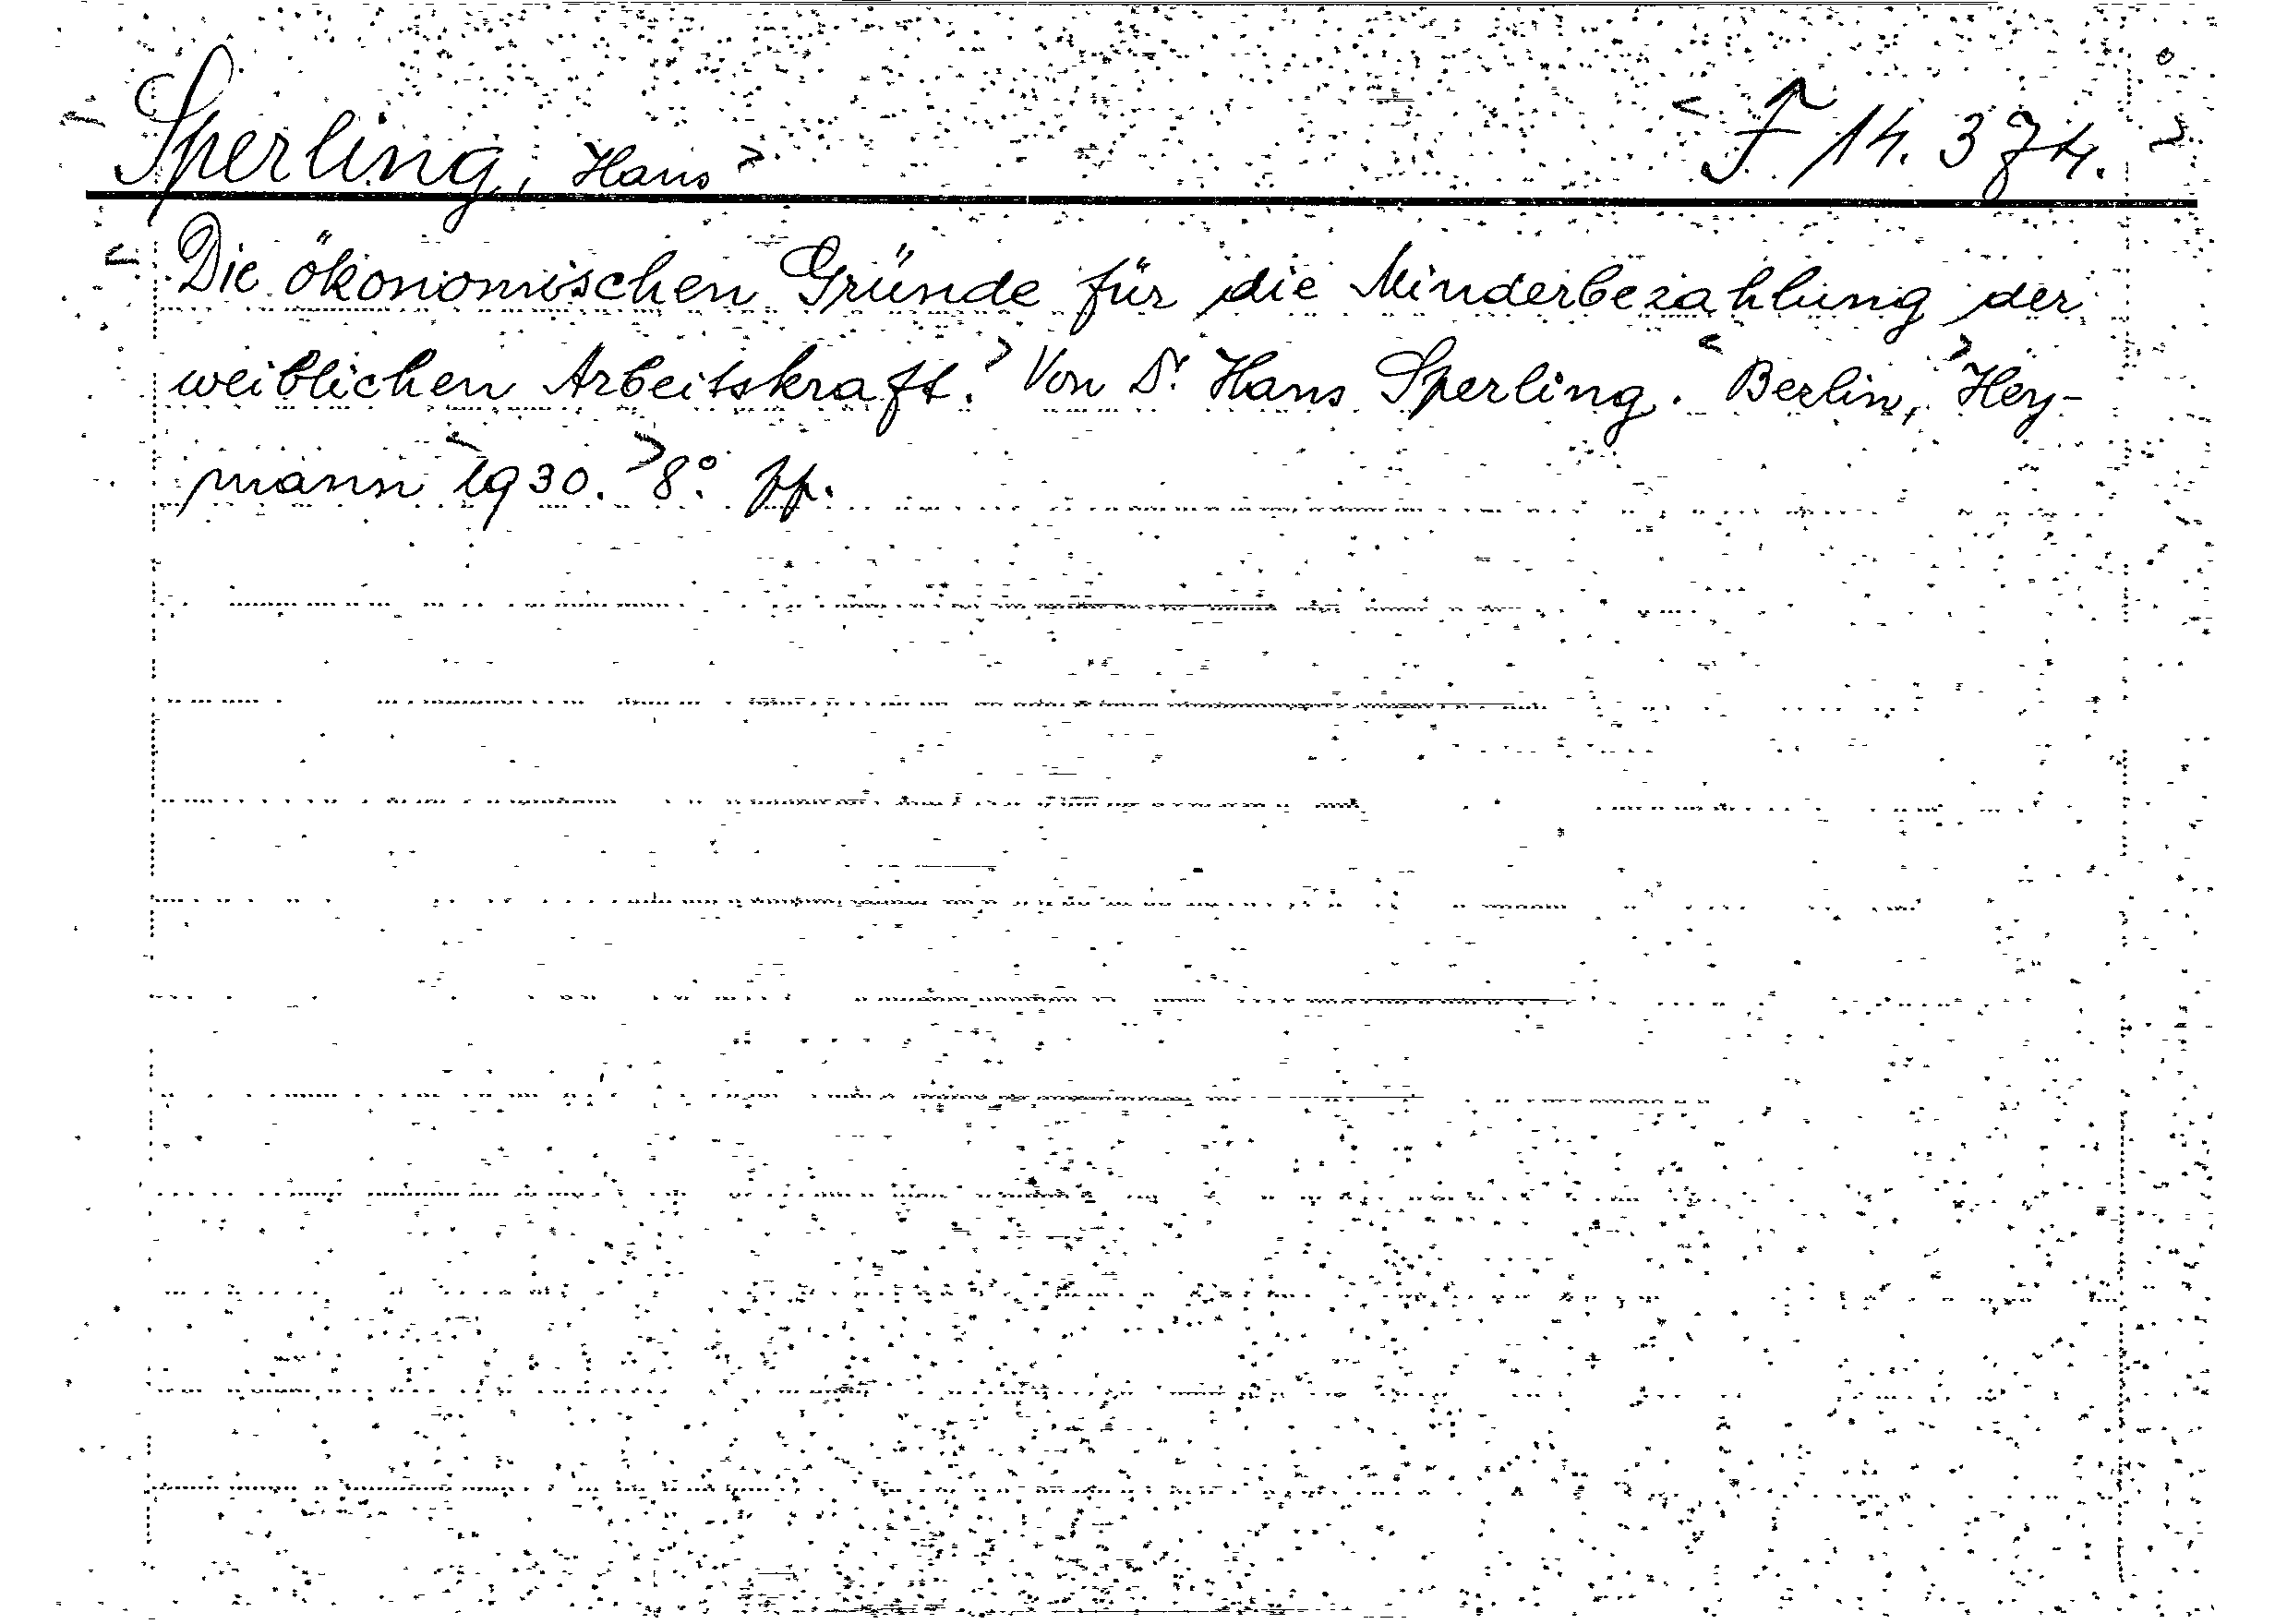 <Sperling, Hans> <F 14.374.>
<Die ökonomischen Gründe für die Minderbezahlung der
weiblichen Arbeitskraft.> Von Dr. Hans Sperling. <Berlin,> Hey-
mann <1930.> 8°.